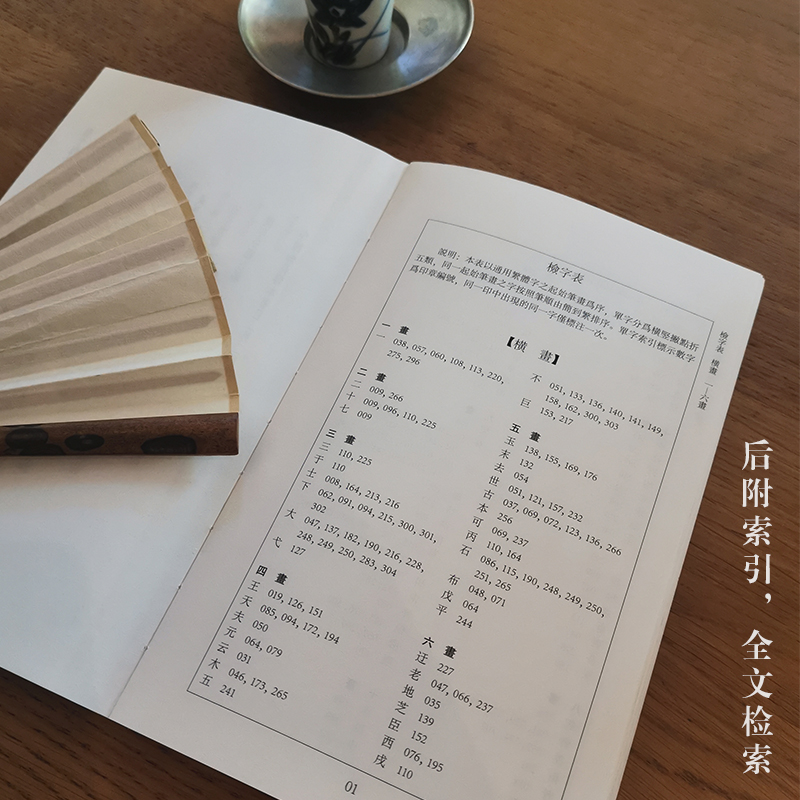 檢字表
説明：本表以通用繁體字之起始筆畫爲序，單字分爲橫豎撇點折
五類，同一起始筆畫之字按照筆順由簡到繁排序。單字索引標示數字
爲印章編號，同一印中出現的同一字僅標注一次。
【橫 畫】
一 畫
一 038, 057, 060, 108, 113, 220,
275, 296
二 畫
二 009, 266
十 009, 096, 110, 225
七 009
三 畫
三 110, 225
于 110
士 008, 164, 213, 216
下 062, 091, 094, 215, 300, 301,
302
大 047, 137, 182, 190, 216, 228,
248, 249, 250, 283, 304
弋 127
四 畫
王 019, 126, 151
天 085, 094, 172, 194
夫 050
元 064, 079
云 031
木 046, 173, 265
五 241
不 051, 133, 136, 140, 141, 149,
158, 162, 300, 303
巨 153, 217
五 畫
玉 138, 155, 169, 176
未 132
去 054
世 051, 121, 157, 232
古 037, 069, 072, 123, 136, 266
本 256
可 069, 237
丙 110, 164
石 086, 115, 190, 248, 249, 250,
251, 265
布 048, 071
戊 064
平 244
六 畫
迂 227
老 047, 066, 237
地 035
芝 139
臣 152
西 076, 195
戌 110
檢字表 橫畫 一—六畫
01
后附索引，全文检索